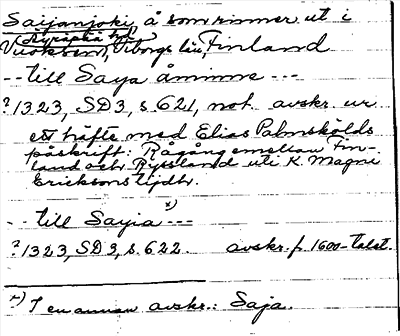 Saijanjoki, å som rinner ut i
(Äyräpää hd)
Vuoksen, Viborgs län, Finland
-- till Saya åminne ---
? 1323, SD 3, s. 621, not. avskr. ur
ett häfte med Elias Palmskölds
påskrift: Rågång emellan Fin-
land och Ryssland uti K. Magni
Ericksons tijdhr.
-- till Sayia x) ---
? 1323, SD 3, s. 622. avskr. fr. 1600-talet.
x) I en annan avskr.: Saja.